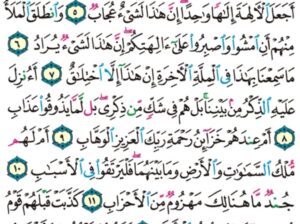 أَجَعَلَ ٱلْأَلِهَةَ إِلَٰهًا وَٰحِدًا ۖ إِنَّ هَٰذَا لَشَىْءٌ عُجَابٌ ٥ وَٱنطَلَقَ ٱلْمَلَأُ
مِنْهُمْ أَنِ ٱمْشُوا۟ وَٱصْبِرُوا۟ عَلَىٰٓ ءَالِهَتِكُمْ ۖ إِنَّ هَٰذَا لَشَىْءٌ يُرَادُ ٦
مَا سَمِعْنَا بِهَٰذَا فِى ٱلْمِلَّةِ ٱلْءَاخِرَةِ إِنْ هَٰذَآ إِلَّا ٱخْتِلَٰقٌ ٧ أَءُنزِلَ
عَلَيْهِ ٱلذِّكْرُ مِنۢ بَيْنِنَا ۚ بَلْ هُمْ فِى شَكٍّ مِّن ذِكْرِى ۖ بَل لَّمَّا يَذُوقُوا۟ عَذَابِ
٨ أَمْ عِندَهُمْ خَزَآئِنُ رَحْمَةِ رَبِّكَ ٱلْعَزِيزِ ٱلْوَهَّابِ ٩ أَمْ لَهُم
مُّلْكُ ٱلسَّمَٰوَٰتِ وَٱلْأَرْضِ وَمَا بَيْنَهُمَا ۖ فَلْيَرْتَقُوا۟ فِى ٱلْأَسْبَٰبِ ١٠
جُندٌ مَّا هُنَالِكَ مَهْزُومٌ مِّنَ ٱلْأَحْزَابِ ١١ كَذَّبَتْ قَبْلَهُمْ قَوْمُ